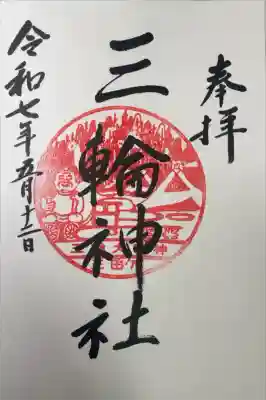 奉拝
三輪神社
令和七年五月十二日